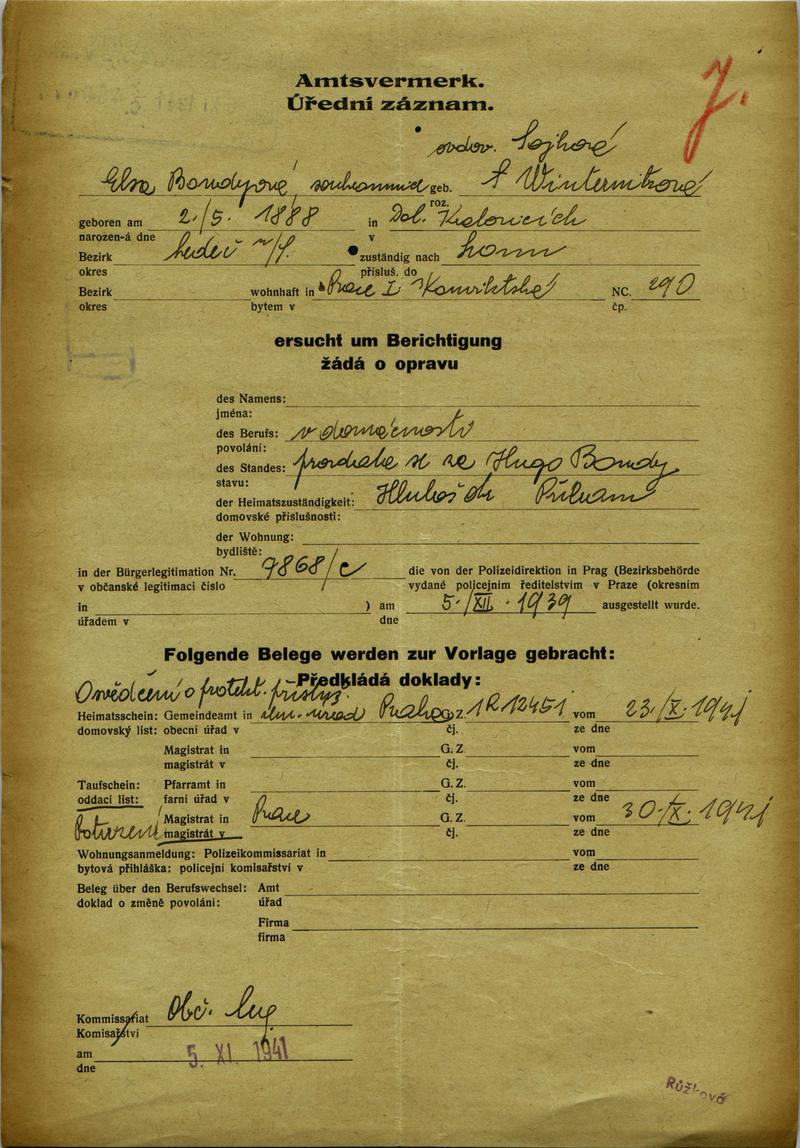 Amtsvermerk.
Úřední záznam.
J.
ovdov. Sojková
Elsa Bondyová, geb. Winternitzová
roz.
geboren am 2./5. 1888 in Dol. Kralovicích
narozen-á dne v
Bezirk Ledeč n/S. zuständig nach
okres přísluš. do
Bezirk wohnhaft in Praze I Konviktská NC. 290
okres bytem v čp.
ersucht um Berichtigung
žádá o opravu
des Namens:
jména:
des Berufs: v domácnosti
povolání:
des Standes: provdala se za Hugo Bondy
stavu:
der Heimatszuständigkeit: Hluboš ok. Příbram
domovské příslušnosti:
der Wohnung:
bydliště:
in der Bürgerlegitimation Nr. 9868/c die von der Polizeidirektion in Prag (Bezirksbehörde
v občanské legitimaci číslo vydané policejním ředitelstvím v Praze (okresním
in ) am 5./XII. 1939 ausgestellt wurde.
úřadem v dne
Folgende Belege werden zur Vorlage gebracht:
Předkládá doklady:
Osvědčení o protekt. přísluš.
Heimatsschein: Gemeindeamt in zem. úřad Praha G. Z. 1R12451 vom 23./X. 1941
domovský list: obecní úřad v čj. ze dne
Magistrat in G. Z. vom
magistrát v čj. ze dne
Taufschein: Pfarramt in G. Z. vom
oddací list: farní úřad v čj. ze dne
Potvrzení Magistrat in Praze G. Z. vom 30./X. 1941
magistrát v čj. ze dne
Wohnungsanmeldung: Polizeikommissariat in vom
bytová přihláška: policejní komisařství v ze dne
Beleg über den Berufswechsel: Amt
doklad o změně povolání: úřad
Firma
firma
Kommissariat Obč. leg.
Komisařství
am 5. XI. 1941
dne
Růžková